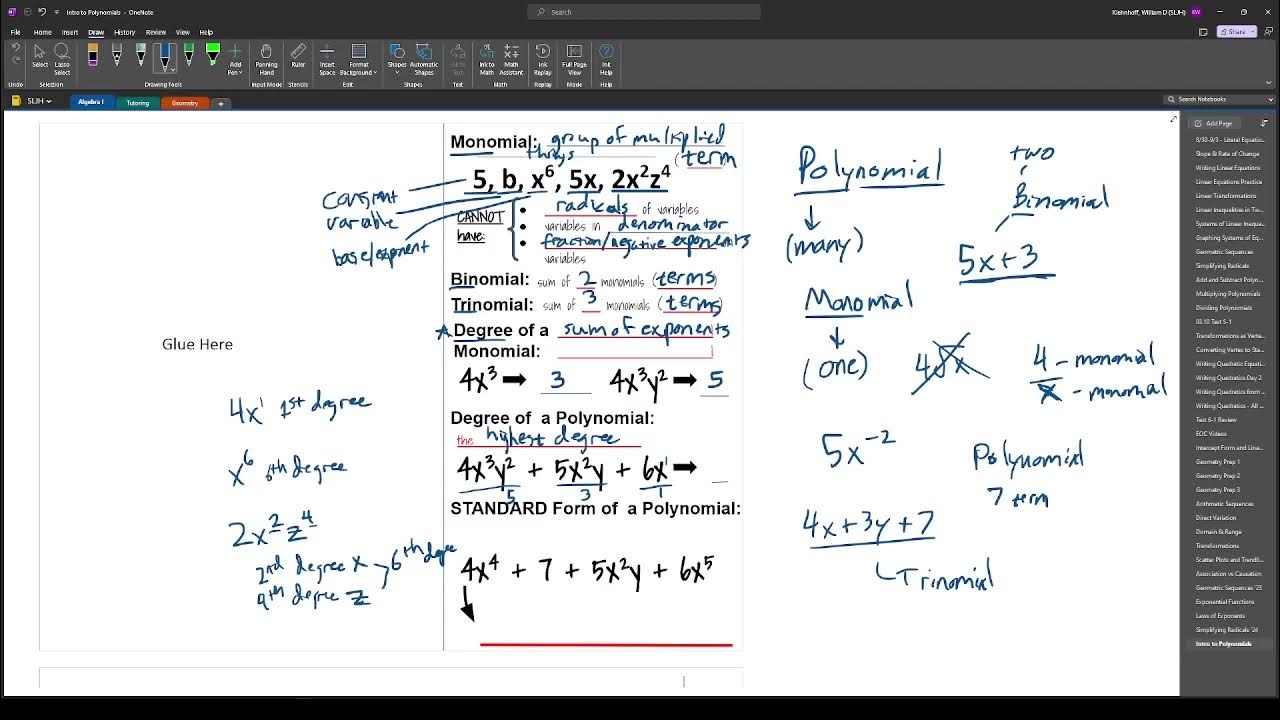 Intro to Polynomials - OneNote
Search
Kleinhoff, William D (SLJH) KW
File Home Insert Draw History Review View Help
Share
Undo
Select
Lasso Select
Add Pen
Panning Hand
Ruler
Insert Space
Format Background
Shapes
Automatic Shapes
Ink to Text
Ink to Math
Math Assistant
Ink Replay
Full Page View
Ink Help
Undo Selection Drawing Tools Input Mode Stencils Edit Shapes Text Math Replay Mode Help
SLJH Algebra I Tutoring Geometry +
Search Notebooks
Glue Here
4x¹ 1st degree
x⁶ 6th degree
2x²z⁴
2nd degree x
4th degree z
6th degree
constant
variable
base/exponent
Monomial: group of multiplied
things (term
5, b, x⁶, 5x, 2x²z⁴
CANNOT have:
• radicals of variables
• variables in denominator
• fraction/negative exponents
variables
Binomial: sum of 2 monomials (terms)
Trinomial: sum of 3 monomials (terms)
* Degree of a sum of exponents
Monomial:
4x³ → 3 4x³y² → 5
Degree of a Polynomial:
the highest degree
4x³y² + 5x²y + 6x¹ →
5 3 1
STANDARD Form of a Polynomial:
4x⁴ + 7 + 5x²y + 6x⁵
Polynomial
(many)
Monomial
(one)
two
Binomial
5x+3
4√x
4 - monomial
x - monomial
5x⁻²
Polynomial
7 term
4x+3y+7
Trinomial
Add Page
8/30-9/3 - Literal Equatio...
Slope & Rate of Change
Writing Linear Equations
Linear Equations Practice
Linear Transformations
Linear Inequalities in Tw...
Systems of Linear Inequa...
Graphing Systems of Eq...
Geometric Sequences
Simplifying Radicals
Add and Subtract Polyn...
Multiplying Polynomials
Dividing Polynomials
03.10 Test 5-1
Transformations as Verte...
Converting Vertex to Sta...
Writing Quadratic Equati...
Writing Quadratics Day 2
Writing Quadratics from ...
Writing Quadratics - All ...
Test 6-1 Review
EOC Videos
Intercept Form and Linea...
Geometry Prep 1
Geometry Prep 2
Geometry Prep 3
Arithmetic Sequences
Direct Variation
Domain & Range
Transformations
Scatter Plots and Trendli...
Association vs Causation
Geometric Sequences '23
Exponential Functions
Laws of Exponents
Simplifying Radicals '24
Intro to Polynomials